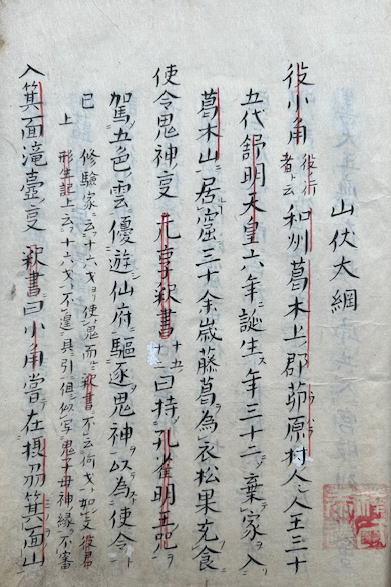 山伏大綱
役小角役行者云和州葛木上郡茆原村人人王三十
五代舒明天皇六年誕生年三十二棄家入
葛木山居窟三十余歳藤葛為衣松果充食
使令鬼神支元亨釈書十五曰持孔雀明王咒
駕五色雲優遊仙府駆逐鬼神以為使令
已修験家云十六使鬼而釈書不云何
上云十六不遑具引但似写鬼子母神縁不審
入箕面滝壺支釈書曰小角嘗在摂刕箕面山